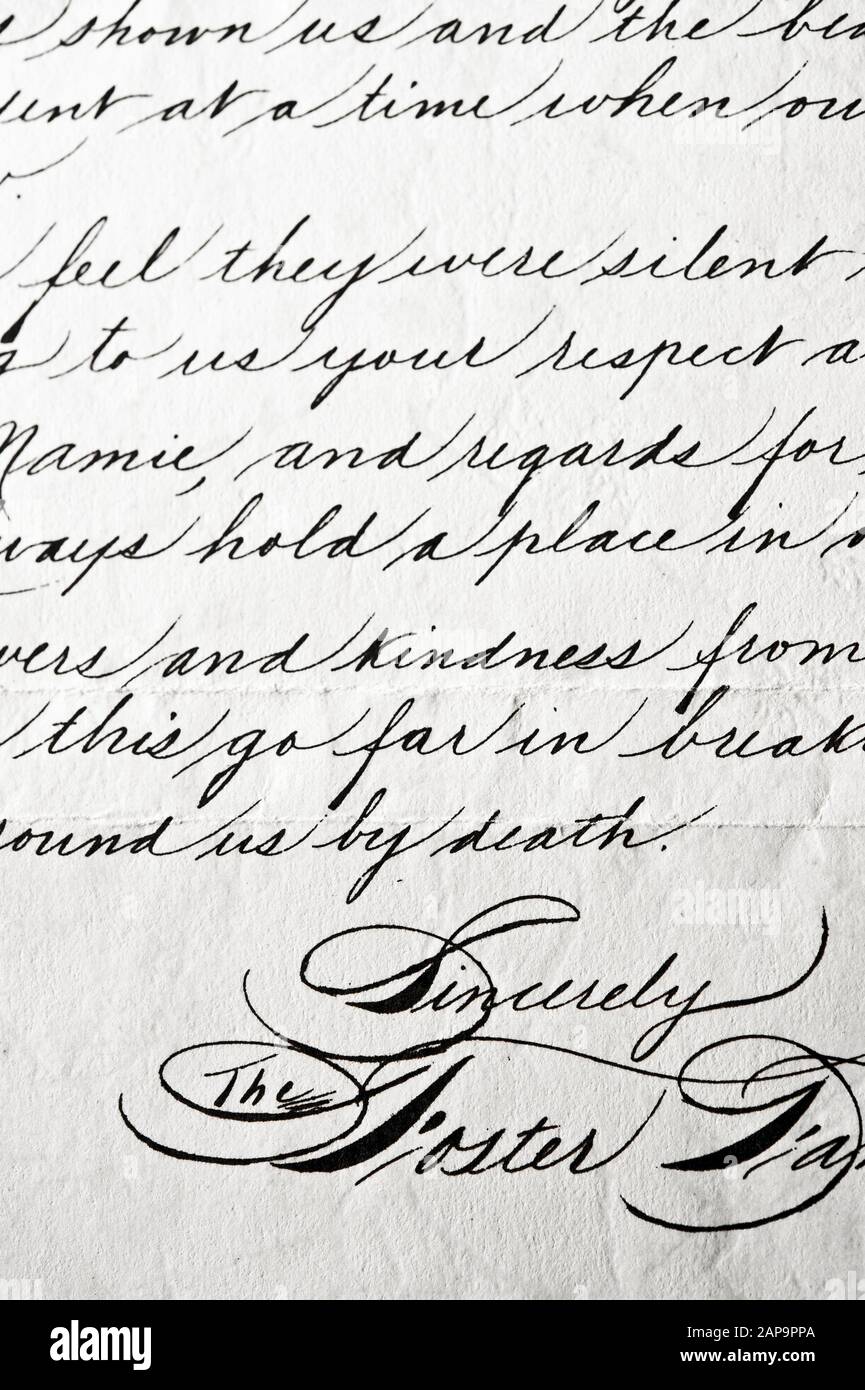 shown us and the
at a time when
feel they were silent
to us your respect
Mamie, and regards for
hold a place in
and kindness from
this go far in
us by death.
Sincerely
The Foster
alamy
alamy
Image ID: 2AP9PPA
www.alamy.com